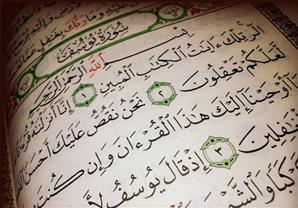 سُورَةُ يُوسُفَ
بِسْمِ ٱللَّهِ ٱلرَّحْمَٰنِ
الٓر تِلْكَ ءَايَٰتُ ٱلْكِتَٰبِ ٱلْمُبِينِ ١ إِنَّآ أَنزَلْنَٰهُ
لَّعَلَّكُمْ تَعْقِلُونَ ٢ نَحْنُ نَقُصُّ عَلَيْكَ أَحْسَنَ
أَوْحَيْنَآ إِلَيْكَ هَٰذَا ٱلْقُرْءَانَ وَإِن كُنتَ
ـغَٰفِلِينَ ٣ إِذْ قَالَ يُوسُفُ لِأَ
ـكَبًا وَٱلشَّمْـ